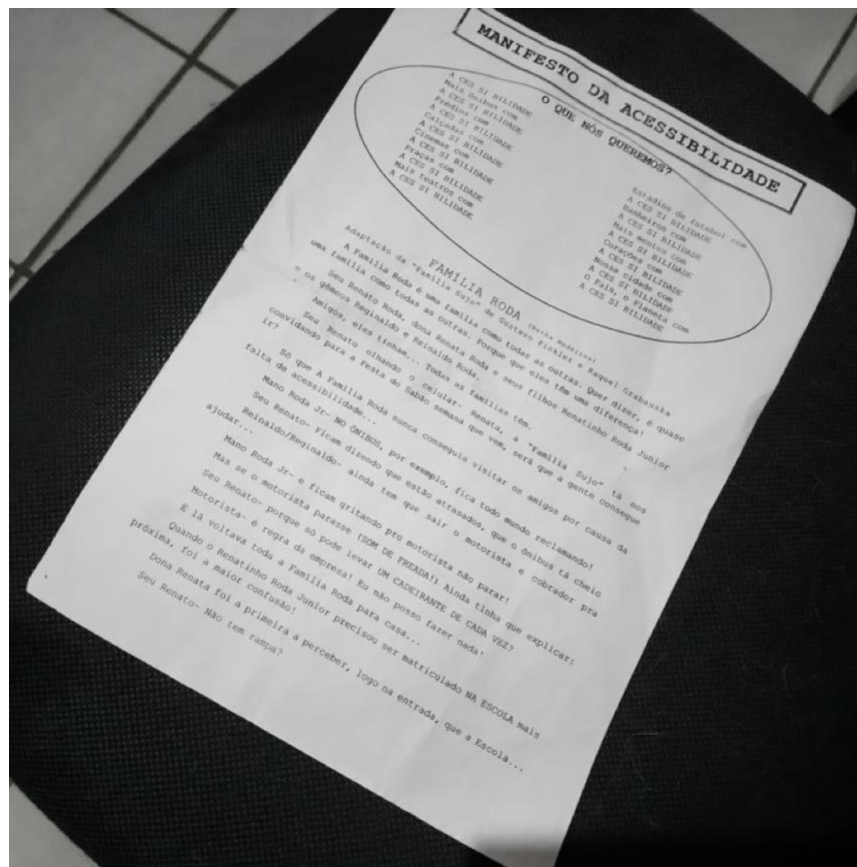 MANIFESTO DA ACESSIBILIDADE
O QUE NÓS QUEREMOS?
A CES SI BILIDADE
Mais Ônibus com
A CES SI BILIDADE
Prédios com
A CES SI BILIDADE
Calçadas com
A CES SI BILIDADE
Cinemas com
A CES SI BILIDADE
Praças com
A CES SI BILIDADE
Mais teatros com
A CES SI BILIDADE
Estádios de futebol com
A CES SI BILIDADE
Banheiros com
A CES SI BILIDADE
Mais mentes com
A CES SI BILIDADE
Corações com
A CES SI BILIDADE
Nossa cidade com
A CES SI BILIDADE
O País, o Planeta com
A CES SI BILIDADE
FAMÍLIA RODA
Adaptação da "Família Sujo" de Gustavo Finkler e Raquel Grabauska
A Família Roda é uma família como todas as outras. Quer dizer, é quase
uma família como todas as outras. Porque que eles têm uma diferença!
Seu Renato Roda, dona Renata Roda e seus filhos Renatinho Roda Junior
e os gêmeos Reginaldo e Reinaldo Roda.
Amigos, eles tinham... Todas as famílias têm.
Seu Renato olhando o celular- Renata, a "Família Sujo" tá nos
convidando para a Festa do Sabão semana que vem, será que a gente consegue
ir?
Só que A Família Roda nunca conseguia visitar os amigos por causa da
falta de acessibilidade...
Mano Roda Jr- NO ÔNIBUS, por exemplo, fica todo mundo reclamando!
Seu Renato- Ficam dizendo que estão atrasados, que o ônibus tá cheio
Reinaldo/Reginaldo- ainda tem que sair o motorista e cobrador pra
ajudar...
Mano Roda Jr- e ficam gritando pro motorista não parar!
Mas se o motorista parasse (SOM DE FREADA!) Ainda tinha que explicar:
Seu Renato- porque só pode levar UM CADEIRANTE DE CADA VEZ?
Motorista- é regra da empresa! Eu não posso fazer nada!
E lá voltava toda a Família Roda para casa...
Quando o Renatinho Roda Junior precisou ser matriculado NA ESCOLA mais
próxima, foi a maior confusão!
Dona Renata foi a primeira a perceber, logo na entrada, que a Escola...
Seu Renato- Não tem rampa?